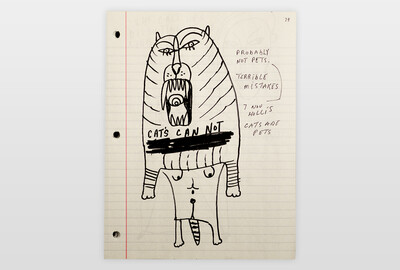 19
PROBABLY
NOT PETS.
TERRIBLE
MISTAKES
CATS ARE
PETS
CATS CAN NOT